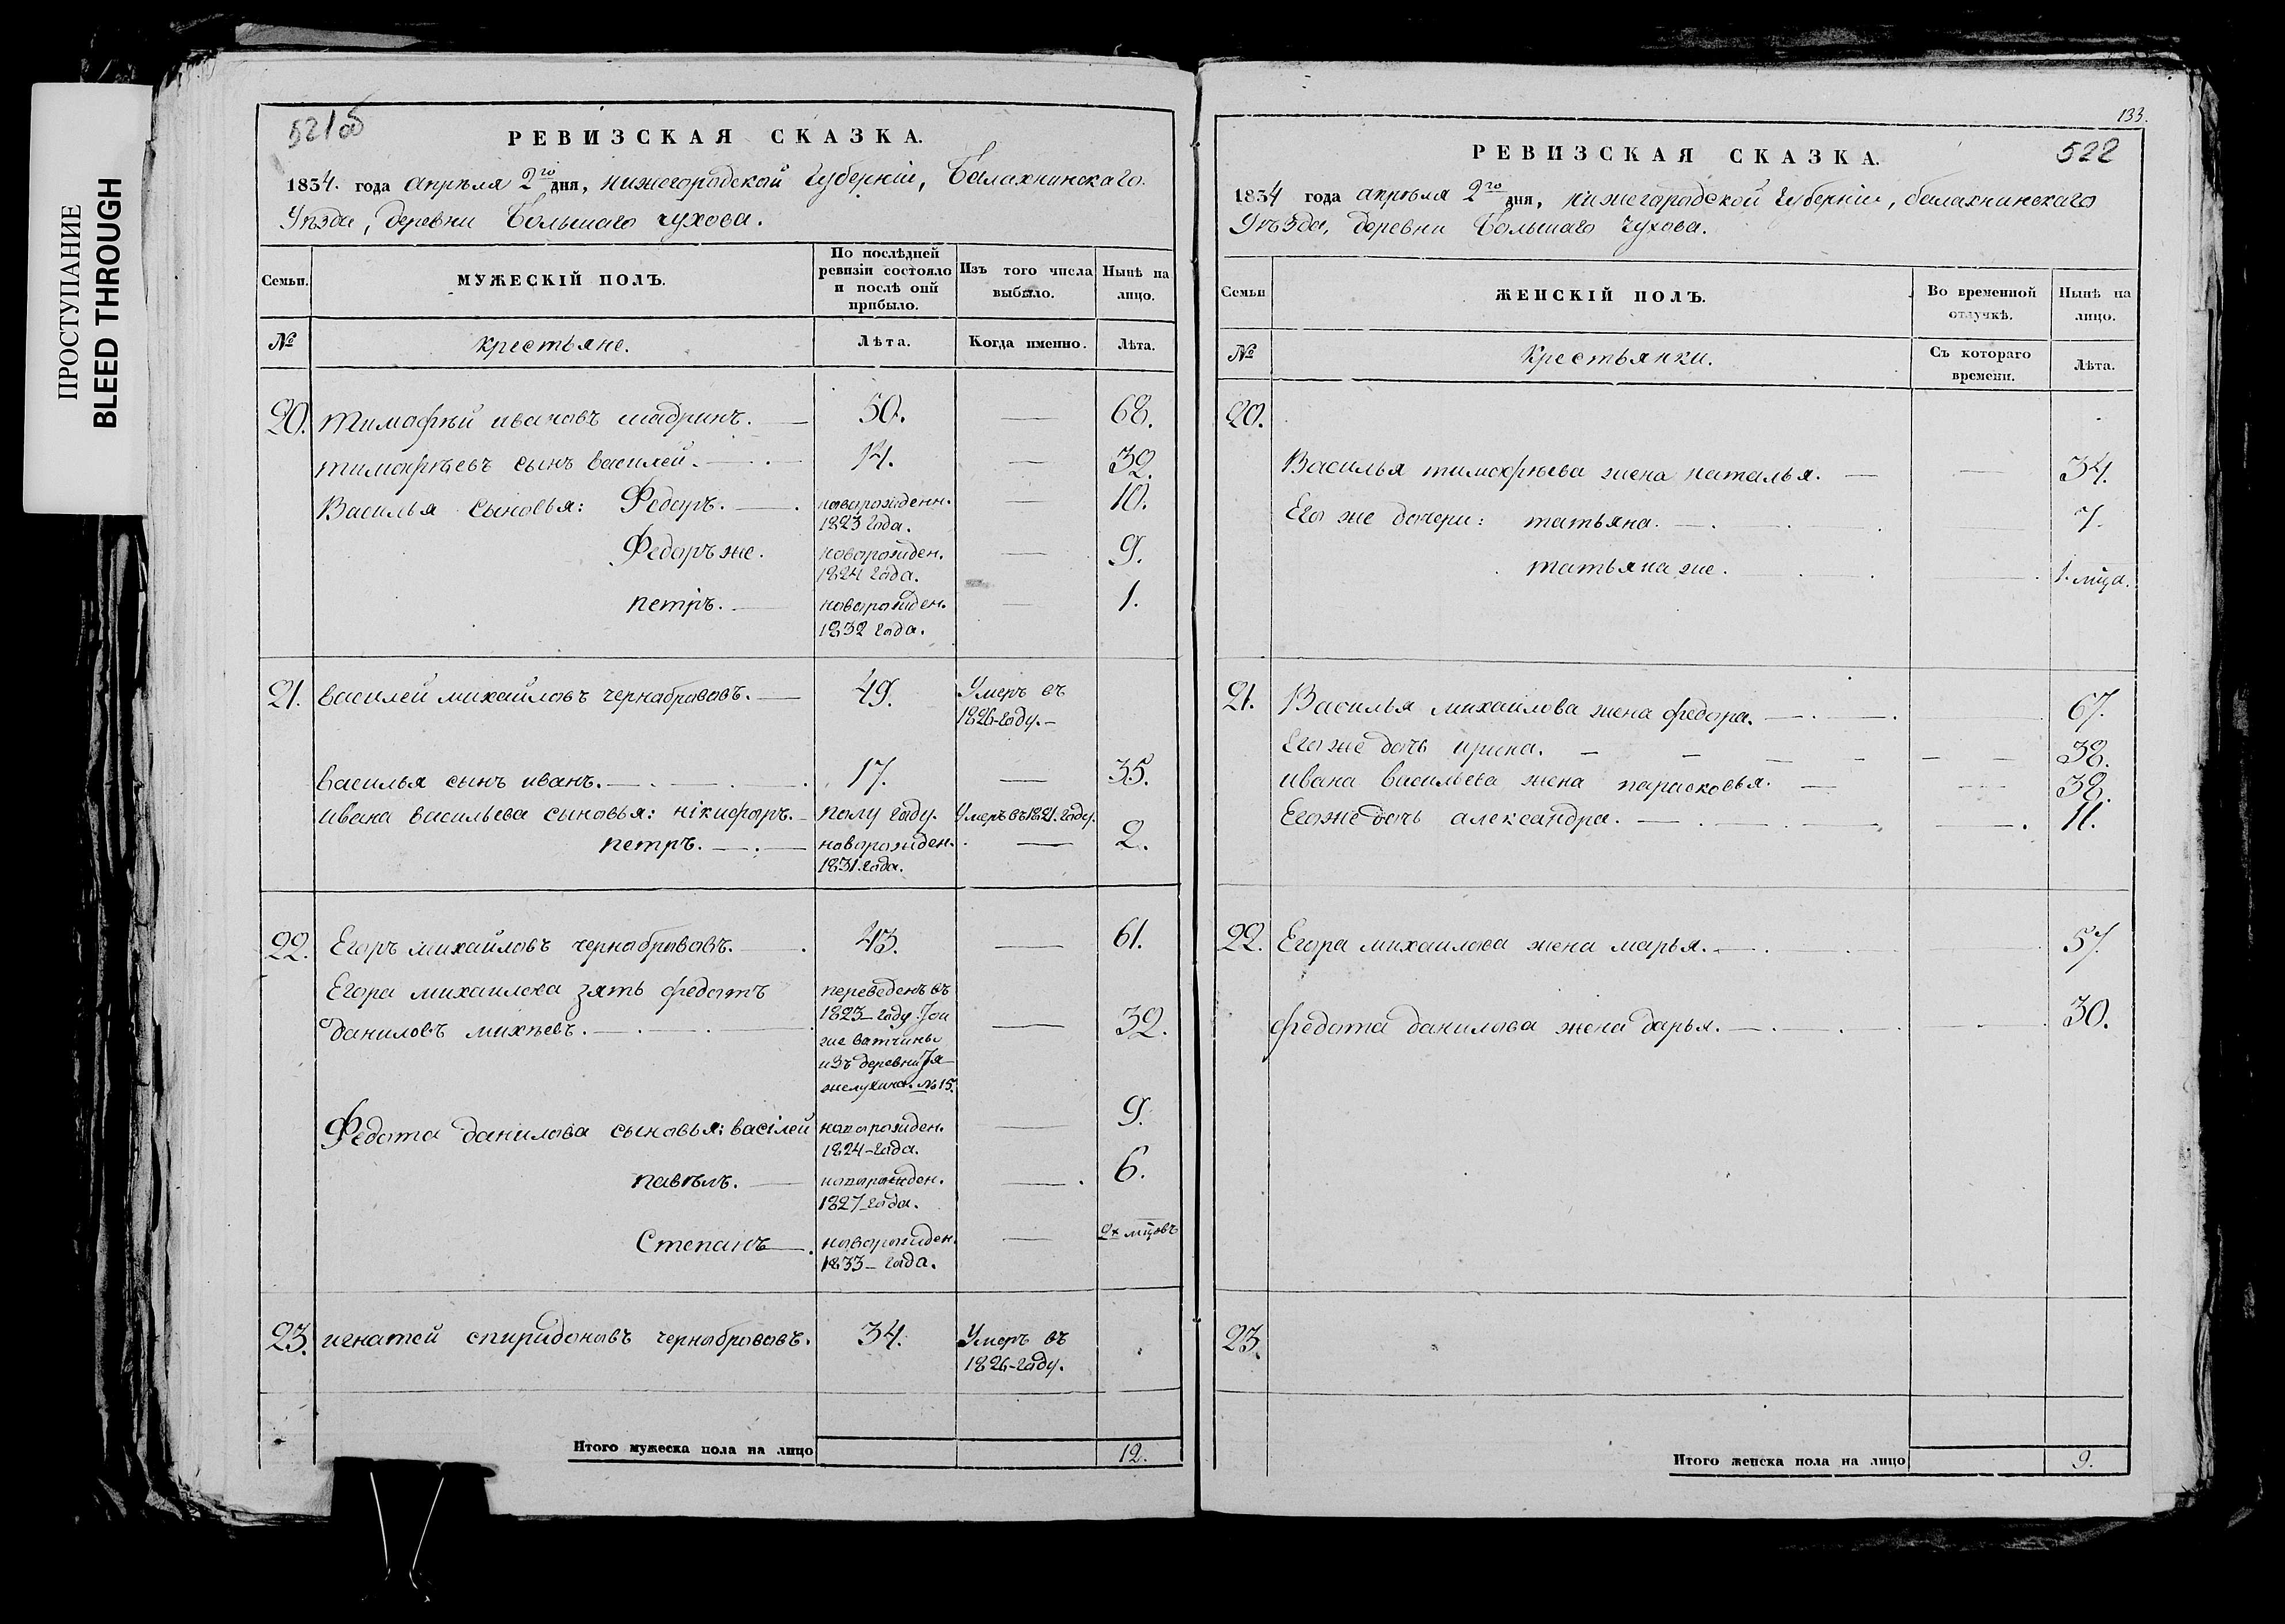 ПРОСТУПАНИЕ
BLEED THROUGH
521об
РЕВИЗСКАЯ СКАЗКА.
1834. года апрѣля 2го дня, нижегородской губерніи, Балахнинскаго
Уѣзда, деревни Большаго чухова.
Семьи.
МУЖЕСКІЙ ПОЛЪ.
По послѣдней ревизіи состояло и послѣ оній прибыло.
Изъ того числа выбыло.
Нынѣ на лицо.
№
крестьяне.
Лѣта.
Когда именно.
Лѣта.
20. тимофѣй ивановъ шадринъ. 50. — 68.
тимофѣевъ сынъ василей. 14. — 32.
Василья сыновья: Федоръ. новорожденн. — 10.
1823 года.
Федоръ же. новорожден. — 9.
1824 года.
петръ. новорожден. — 1.
1832 года.
21. василей михайловъ чернобрововъ. 49. Умеръ въ
1826-году.
василья сынъ иванъ. 17. — 35.
ивана васильева сыновья: нікифоръ. полу году. Умеръ въ 1821. году.
петръ. новорожден. — 2.
1831. года.
22. Егоръ михайловъ чернобрововъ. 43. — 61.
Егора михаилова зять федотъ переведенъ въ
даниловъ михѣевъ. 1823-году. Той — 32.
же вотчины
изъ деревни
№ 15.
Федота данилова сыновья: васілей новорожден. — 9.
1824-года.
павѣлъ. новорожден. — 6.
1827-года.
Степанъ. новорожден. — мцовъ
1833-года.
23. игнатей спиридоновъ чернобрововъ. 34. Умеръ въ
1826-году.
Итого мужеска пола на лицо 12.
133.
522
РЕВИЗСКАЯ СКАЗКА.
1834 года апрѣля 2го дня, нижегородской губерніи, балахнинскаго
Уѣзда, деревни Большаго чухова.
Семьи
ЖЕНСКІЙ ПОЛЪ.
Во временной отлучкѣ.
Нынѣ на лицо.
№
крестьянки.
Съ котораго времени.
Лѣта.
20.
Василья тимофѣева жена наталья. — 34.
Его же дочери: татьяна. — 7.
татьяна же. — 1. мца.
21. Василья михаилова жена федора. — 67.
Его же дочь ирина. — 38.
ивана васильева жена парасковья. — 38.
Его же дочь александра. — 11.
22. Егора михаилова жена марья. — 57.
федота данилова жена дарья. — 30.
23.
Итого женска пола на лицо 9.